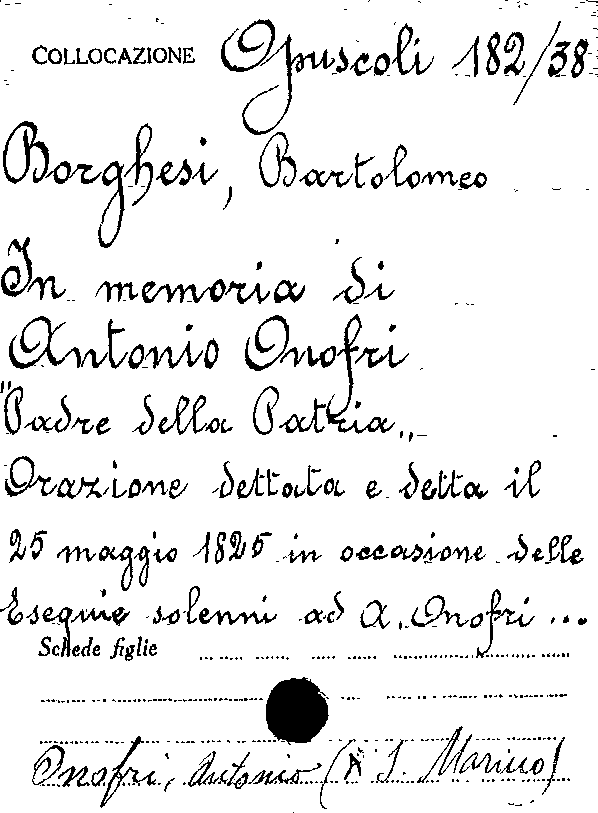 COLLOCAZIONE Opuscoli 182/38
Borghesi, Bartolomeo
In memoria di
Antonio Onofri
"Padre della Patria„
Orazione dettata e detta il
25 maggio 1825 in occasione delle
Esequie solenni ad A. Onofri ...
Schede figlie
Onofri, Antonio ( S. Marino)